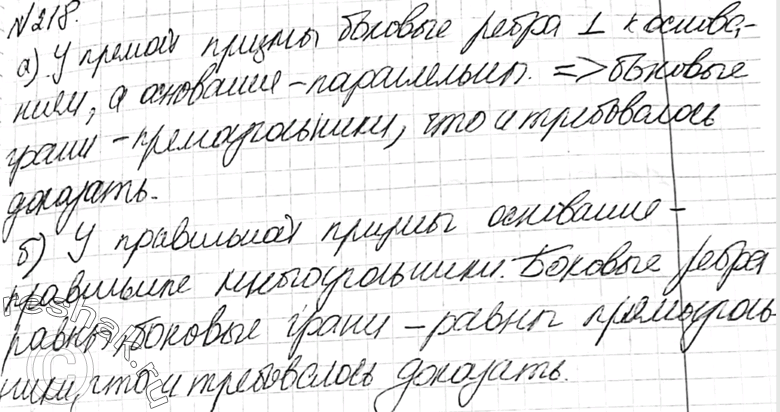 №218.
а) У прямой призмы боковые ребра ⊥ к основа-
ниям, а основания - параллельны. => боковые
грани - прямоугольники, что и требовалось
доказать.
б) У правильной призмы основание -
правильные многоугольники. Боковые ребра
равны, боковые грани - равны прямоуголь-
ники, что и требовалось доказать.
reshak.ru